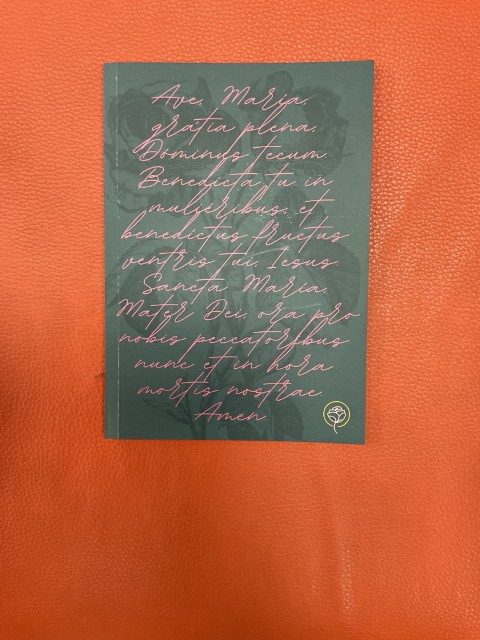 Ave, Maria,
gratia plena,
Dominus tecum.
Benedicta tu in
mulieribus, et
benedictus fructus
ventris tui, Iesus.
Sancta Maria,
Mater Dei, ora pro
nobis peccatoribus
nunc et in hora
mortis nostrae.
Amen.